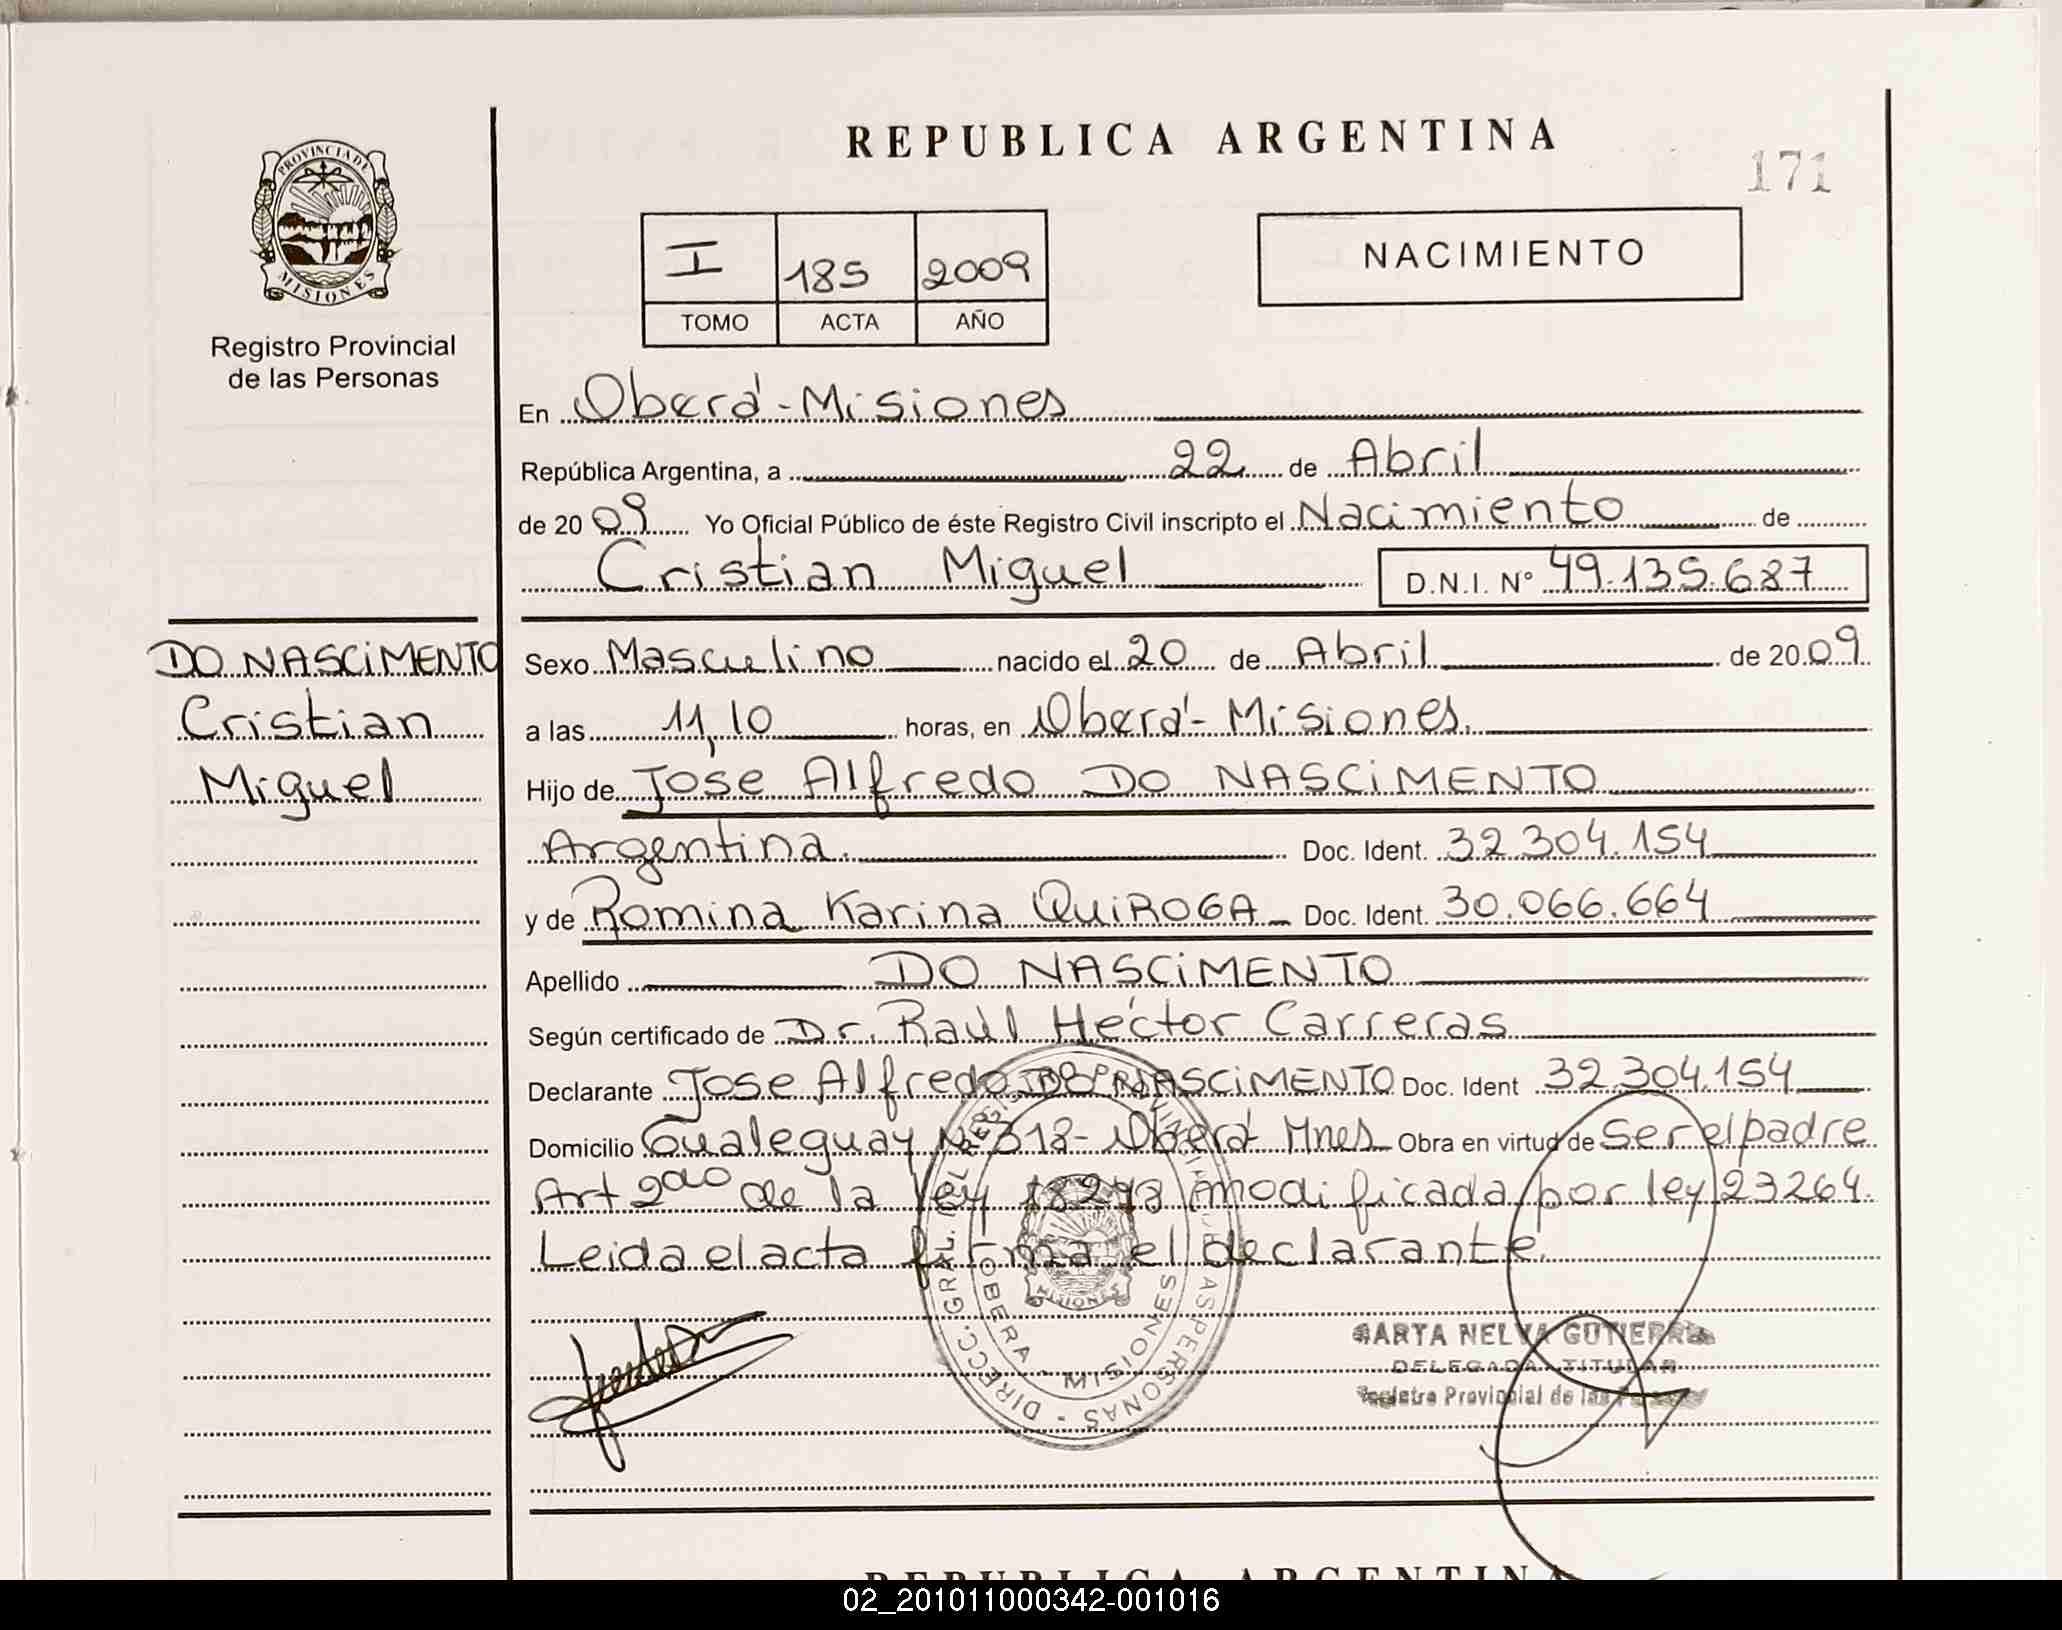 REPUBLICA ARGENTINA
171
PROVINCIA DE
MISIONES
Registro Provincial
de las Personas
I 185 2009
TOMO ACTA AÑO
NACIMIENTO
En Oberá - Misiones
República Argentina, a 22 de Abril
de 2009 Yo Oficial Público de éste Registro Civil inscripto el Nacimiento de
Cristian Miguel D.N.I. Nº 49.135.687
DO NASCiMENTO
Cristian
Miguel
Sexo Masculino nacido el 20 de Abril de 2009
a las 11,10 horas, en Oberá - Misiones.
Hijo de Jose Alfredo DO NASCiMENTO
Argentina. Doc. Ident. 32.304.154
y de Romina Karina QUiROGA Doc. Ident. 30.066.664
Apellido DO NASCiMENTO
Según certificado de Dr. Raúl Héctor Carreras
Declarante Jose Alfredo DO NASCiMENTO Doc. Ident 32.304.154
Domicilio Gualeguay Nº 318 - Oberá Mnes Obra en virtud de Ser el padre
Art 2do de la ley 18248 modificada por ley 23264.
Leida el acta firma el declarante.
DIRECC. GRAL. DEL REGISTRO PROVINCIAL DE LAS PERSONAS
OBERA - MISIONES
MISIONES
NELVA
DELEGADA TITULAR
Registro Provincial de las
REPUBLICA ARGENTINA
02_201011000342-001016